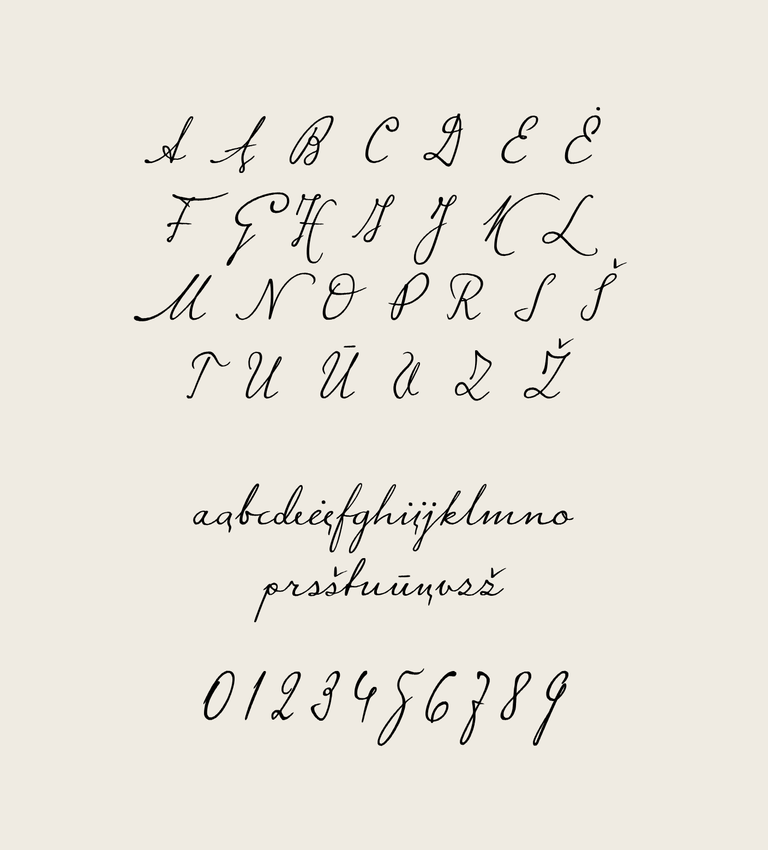 A Ą B C D E Ė
F G H I J K L
M N O P R S Š
T U Ū V Z Ž
aąbcdeėęfghiįjklmno
prsštuūųvzž
0123456789